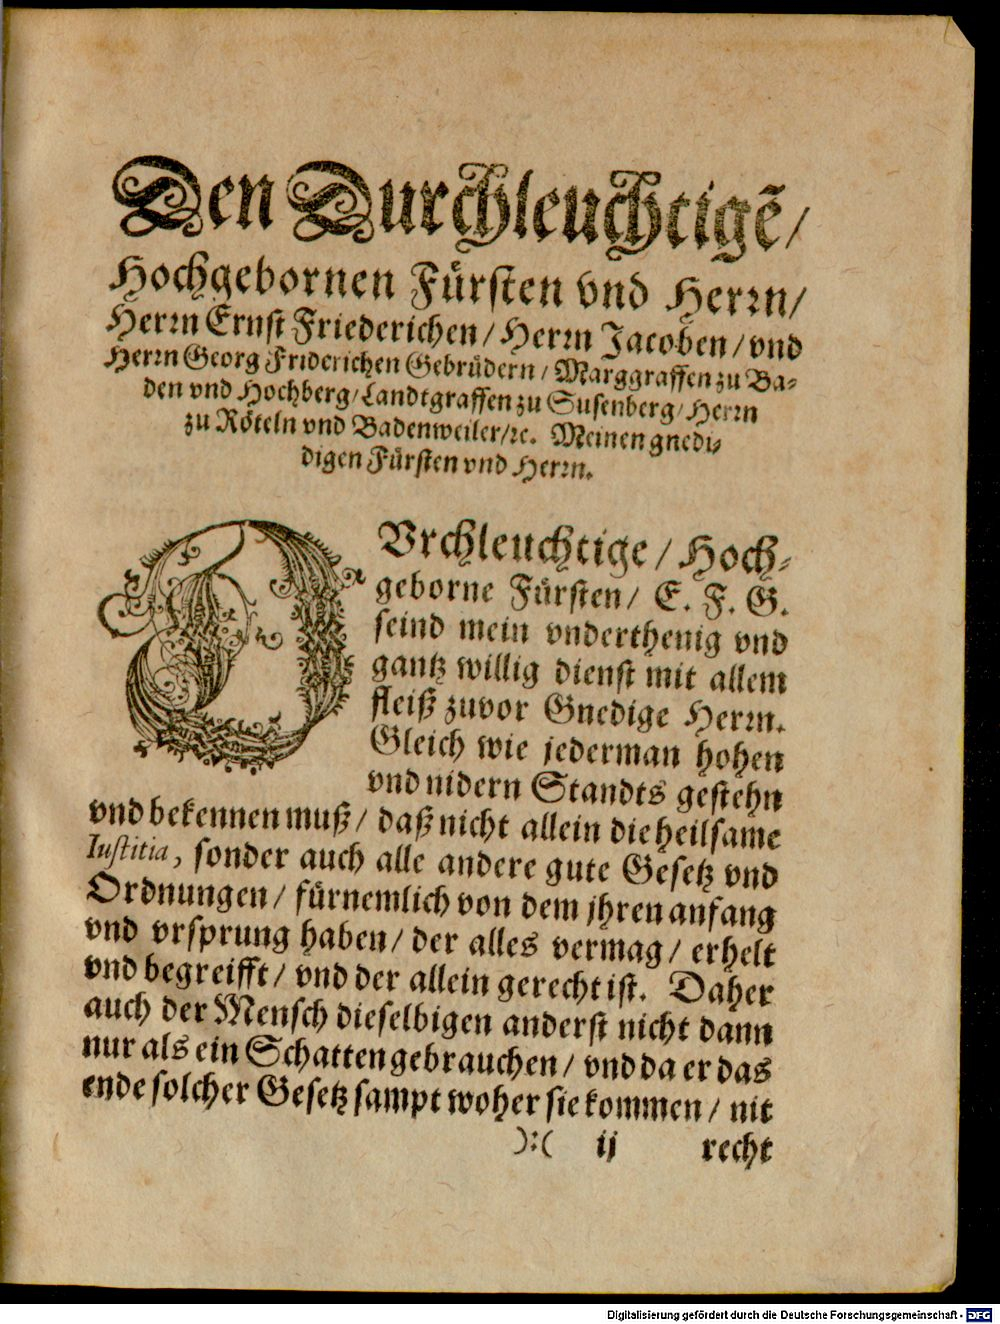 Den Durchleuchtigẽ/
Hochgebornen Fürsten vnd Herrn/
Herrn Ernst Friederichen/ Herrn Jacoben/ vnd
Herrn Georg Friderichen Gebrüdern/ Marggraffen zu Ba-
den vnd Hochberg/ Landtgraffen zu Susenberg/ Herrn
zu Röteln vnd Badenweiler/ꝛc. Meinen gnedi-
digen Fürsten vnd Herrn.
DVrchleuchtige/ Hoch-
geborne Fürsten/ E. F. G.
seind mein vnderthenig vnd
gantz willig dienst mit allem
fleiß zuvor Gnedige Herrn.
Gleich wie jederman hohen
vnd nidern Standts gestehn
vnd bekennen muß/ daß nicht allein die heilsame
Iustitia, sonder auch alle andere gute Gesetz vnd
Ordnungen/ fürnemlich von dem jhren anfang
vnd vrsprung haben/ der alles vermag/ erhelt
vnd begreifft/ vnd der allein gerecht ist. Daher
auch der Mensch dieselbigen anderst nicht dann
nur als ein Schatten gebrauchen/ vnd da er das
ende solcher Gesetz sampt woher sie kommen/ nit
):( ij recht
Digitalisierung gefördert durch die Deutsche Forschungsgemeinschaft - DFG